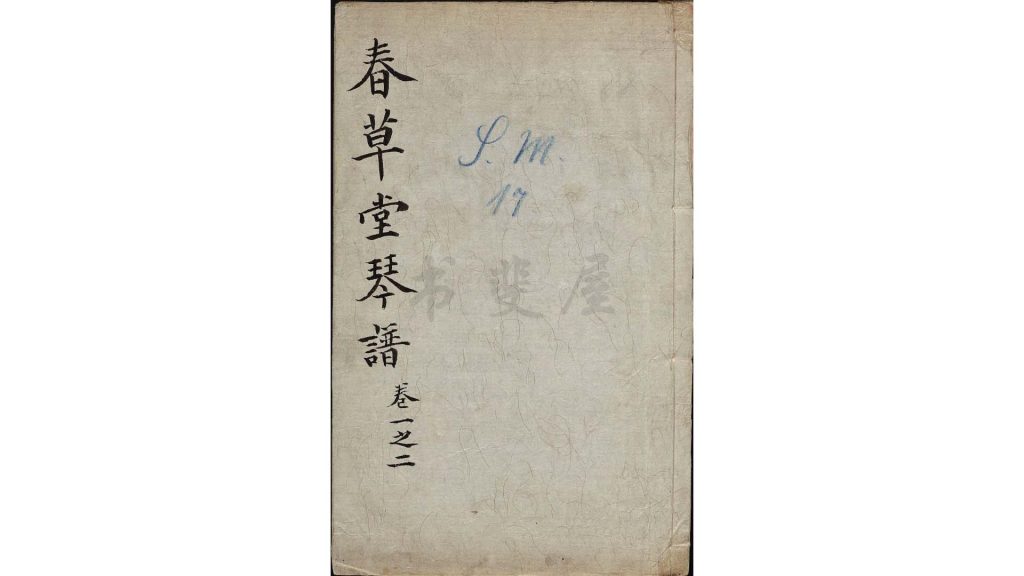 春草堂琴譜
卷一之二
S. M.
17
书斐屋